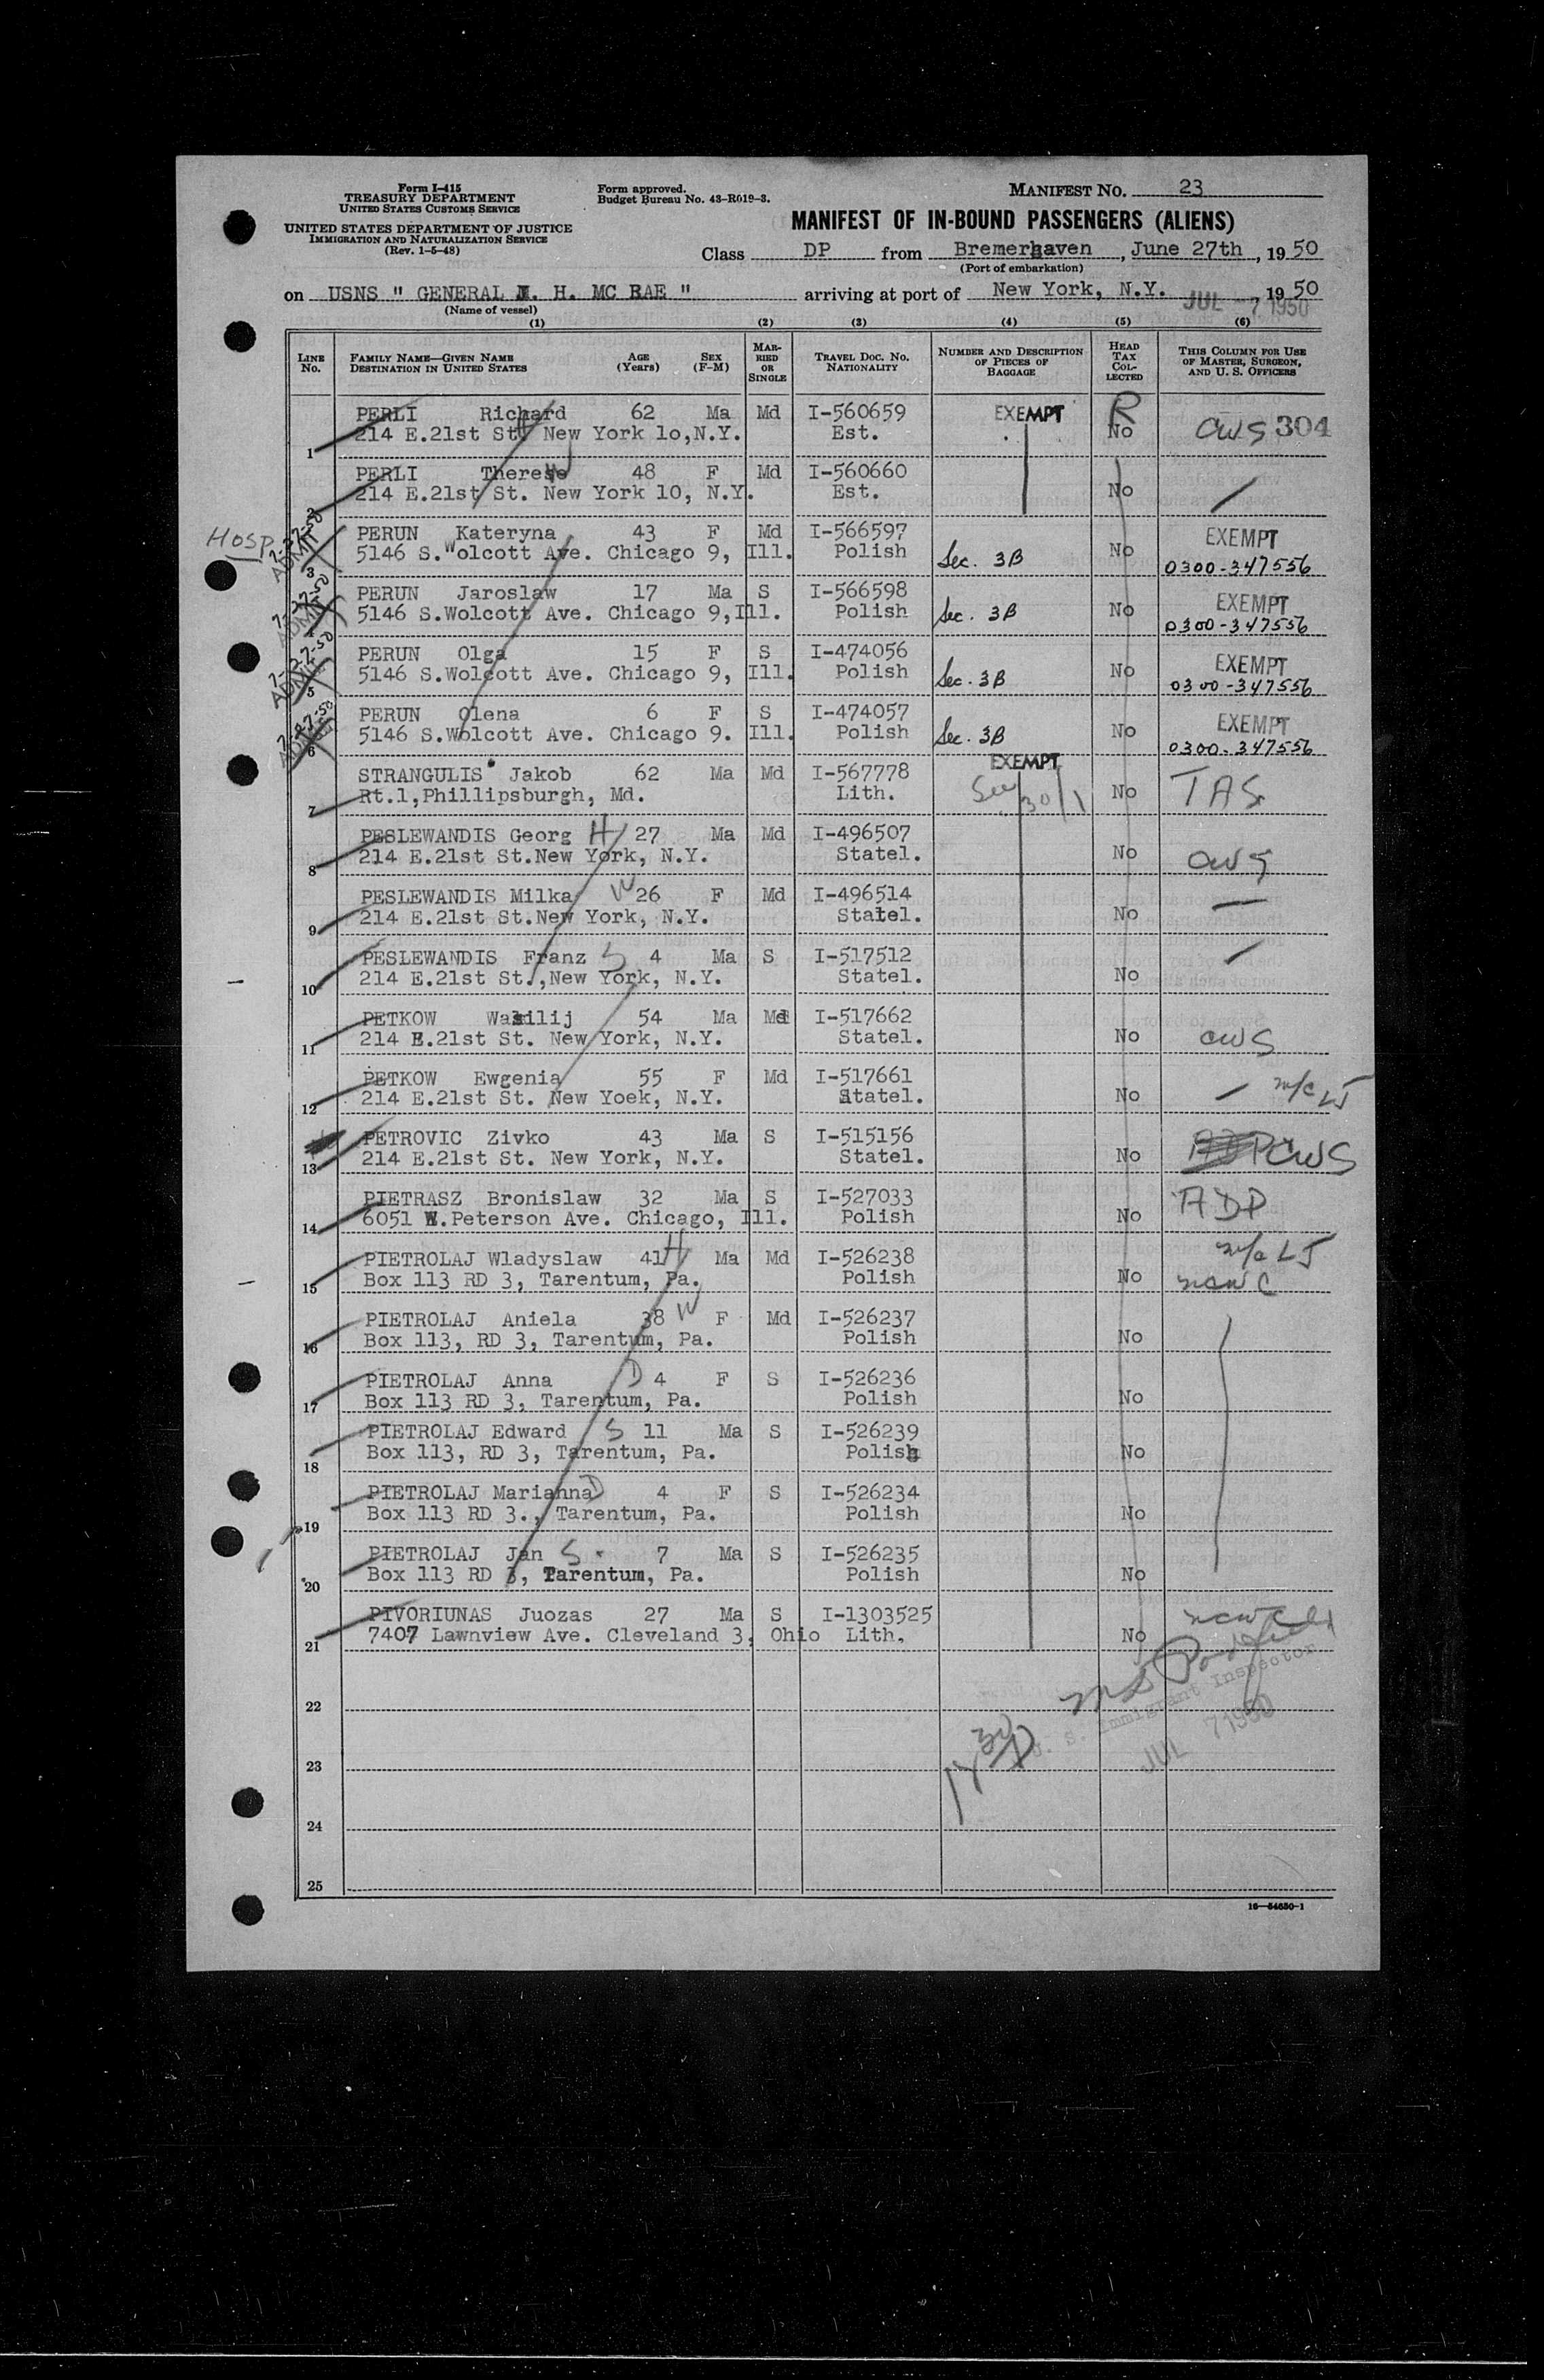 Form I-415
TREASURY DEPARTMENT
UNITED STATES CUSTOMS SERVICE
UNITED STATES DEPARTMENT OF JUSTICE
IMMIGRATION AND NATURALIZATION SERVICE
(Rev. 1-5-48)
Form approved.
Budget Bureau No. 43-R019-3.
MANIFEST NO. 23
MANIFEST OF IN-BOUND PASSENGERS (ALIENS)
Class DP from Bremerhaven, June 27th, 1950
(Port of embarkation)
on USNS " GENERAL H. MC RAE " arriving at port of New York, N.Y. JUL -7 1950 1950
(Name of vessel)
(1) (2) (3) (4) (5) (6)
LINE NO. FAMILY NAME—GIVEN NAME DESTINATION IN UNITED STATES AGE (YEARS) SEX (F-M) MARRIED OR SINGLE TRAVEL DOC. NO. NATIONALITY NUMBER AND DESCRIPTION OF PIECES OF BAGGAGE HEAD TAX COLLECTED THIS COLUMN FOR USE OF MASTER, SURGEON, AND U. S. OFFICERS
PERLI Richard 62 Ma Md I-560659 EXEMPT R
1 214 E.21st St. New York 1o,N.Y. Est. No CWS 304
PERLI Therese W 48 F Md I-560660
2 214 E.21st St. New York 10, N.Y. Est. No
Hosp. 7-27-50 ADMT PERUN Kateryna 43 F Md I-566597 EXEMPT
3 5146 S.Wolcott Ave. Chicago 9, Ill. Polish Sec. 3B No 0300-347556
7-27-50 ADMT PERUN Jaroslaw 17 Ma S I-566598 EXEMPT
4 5146 S.Wolcott Ave. Chicago 9,Ill. Polish Sec. 3B No 0300-347556
7-27-50 ADMT PERUN Olga 15 F S I-474056 EXEMPT
5 5146 S.Wolcott Ave. Chicago 9, Ill. Polish Sec. 3B No 0300-347556
7-27-50 ADMT PERUN Olena 6 F S I-474057 EXEMPT
6 5146 S.Wolcott Ave. Chicago 9. Ill. Polish Sec. 3B No 0300-347556
STRANGULIS Jakob 62 Ma Md I-567778 EXEMPT
7 Rt.1,Phillipsburgh, Md. Lith. No TAS
PESLEWANDIS Georg H 27 Ma Md I-496507
8 214 E.21st St.New York, N.Y. Statel. No CWS
PESLEWANDIS Milka W 26 F Md I-496514
9 214 E.21st St.New York, N.Y. Statel. No
PESLEWANDIS Franz S 4 Ma S I-517512
10 214 E.21st St.,New York, N.Y. Statel. No
PETKOW Wasilij 54 Ma Md I-517662
11 214 E.21st St. New York, N.Y. Statel. No CWS
PETKOW Ewgenia 55 F Md I-517661
12 214 E.21st St. New Yoek, N.Y. Statel. No
PETROVIC Zivko 43 Ma S I-515156
13 214 E.21st St. New York, N.Y. Statel. No CWS
PIETRASZ Bronislaw 32 Ma S I-527033 ADP
14 6051 W.Peterson Ave. Chicago, Ill. Polish No
PIETROLAJ Wladyslaw 41 H Ma Md I-526238
15 Box 113 RD 3, Tarentum, Pa. Polish No NCWC
PIETROLAJ Aniela 38 W F Md I-526237
16 Box 113, RD 3, Tarentum, Pa. Polish No
PIETROLAJ Anna D 4 F S I-526236
17 Box 113 RD 3, Tarentum, Pa. Polish No
PIETROLAJ Edward S 11 Ma S I-526239
18 Box 113, RD 3, Tarentum, Pa. Polish No
PIETROLAJ Marianna D 4 F S I-526234
19 Box 113 RD 3., Tarentum, Pa. Polish No
PIETROLAJ Jan S 7 Ma S I-526235
20 Box 113 RD 3, Tarentum, Pa. Polish No
PIVORIUNAS Juozas 27 Ma S I-1303525
21 7407 Lawnview Ave. Cleveland 3, Ohio Lith. No
U. S. Immigrant Inspector
22
JUL 7 1950
23
24
25
16—54650-1